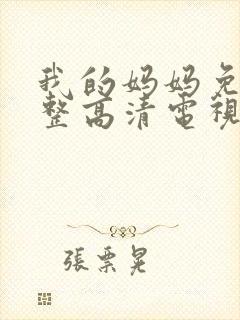 我的妈妈免
整高清電視
張票晃